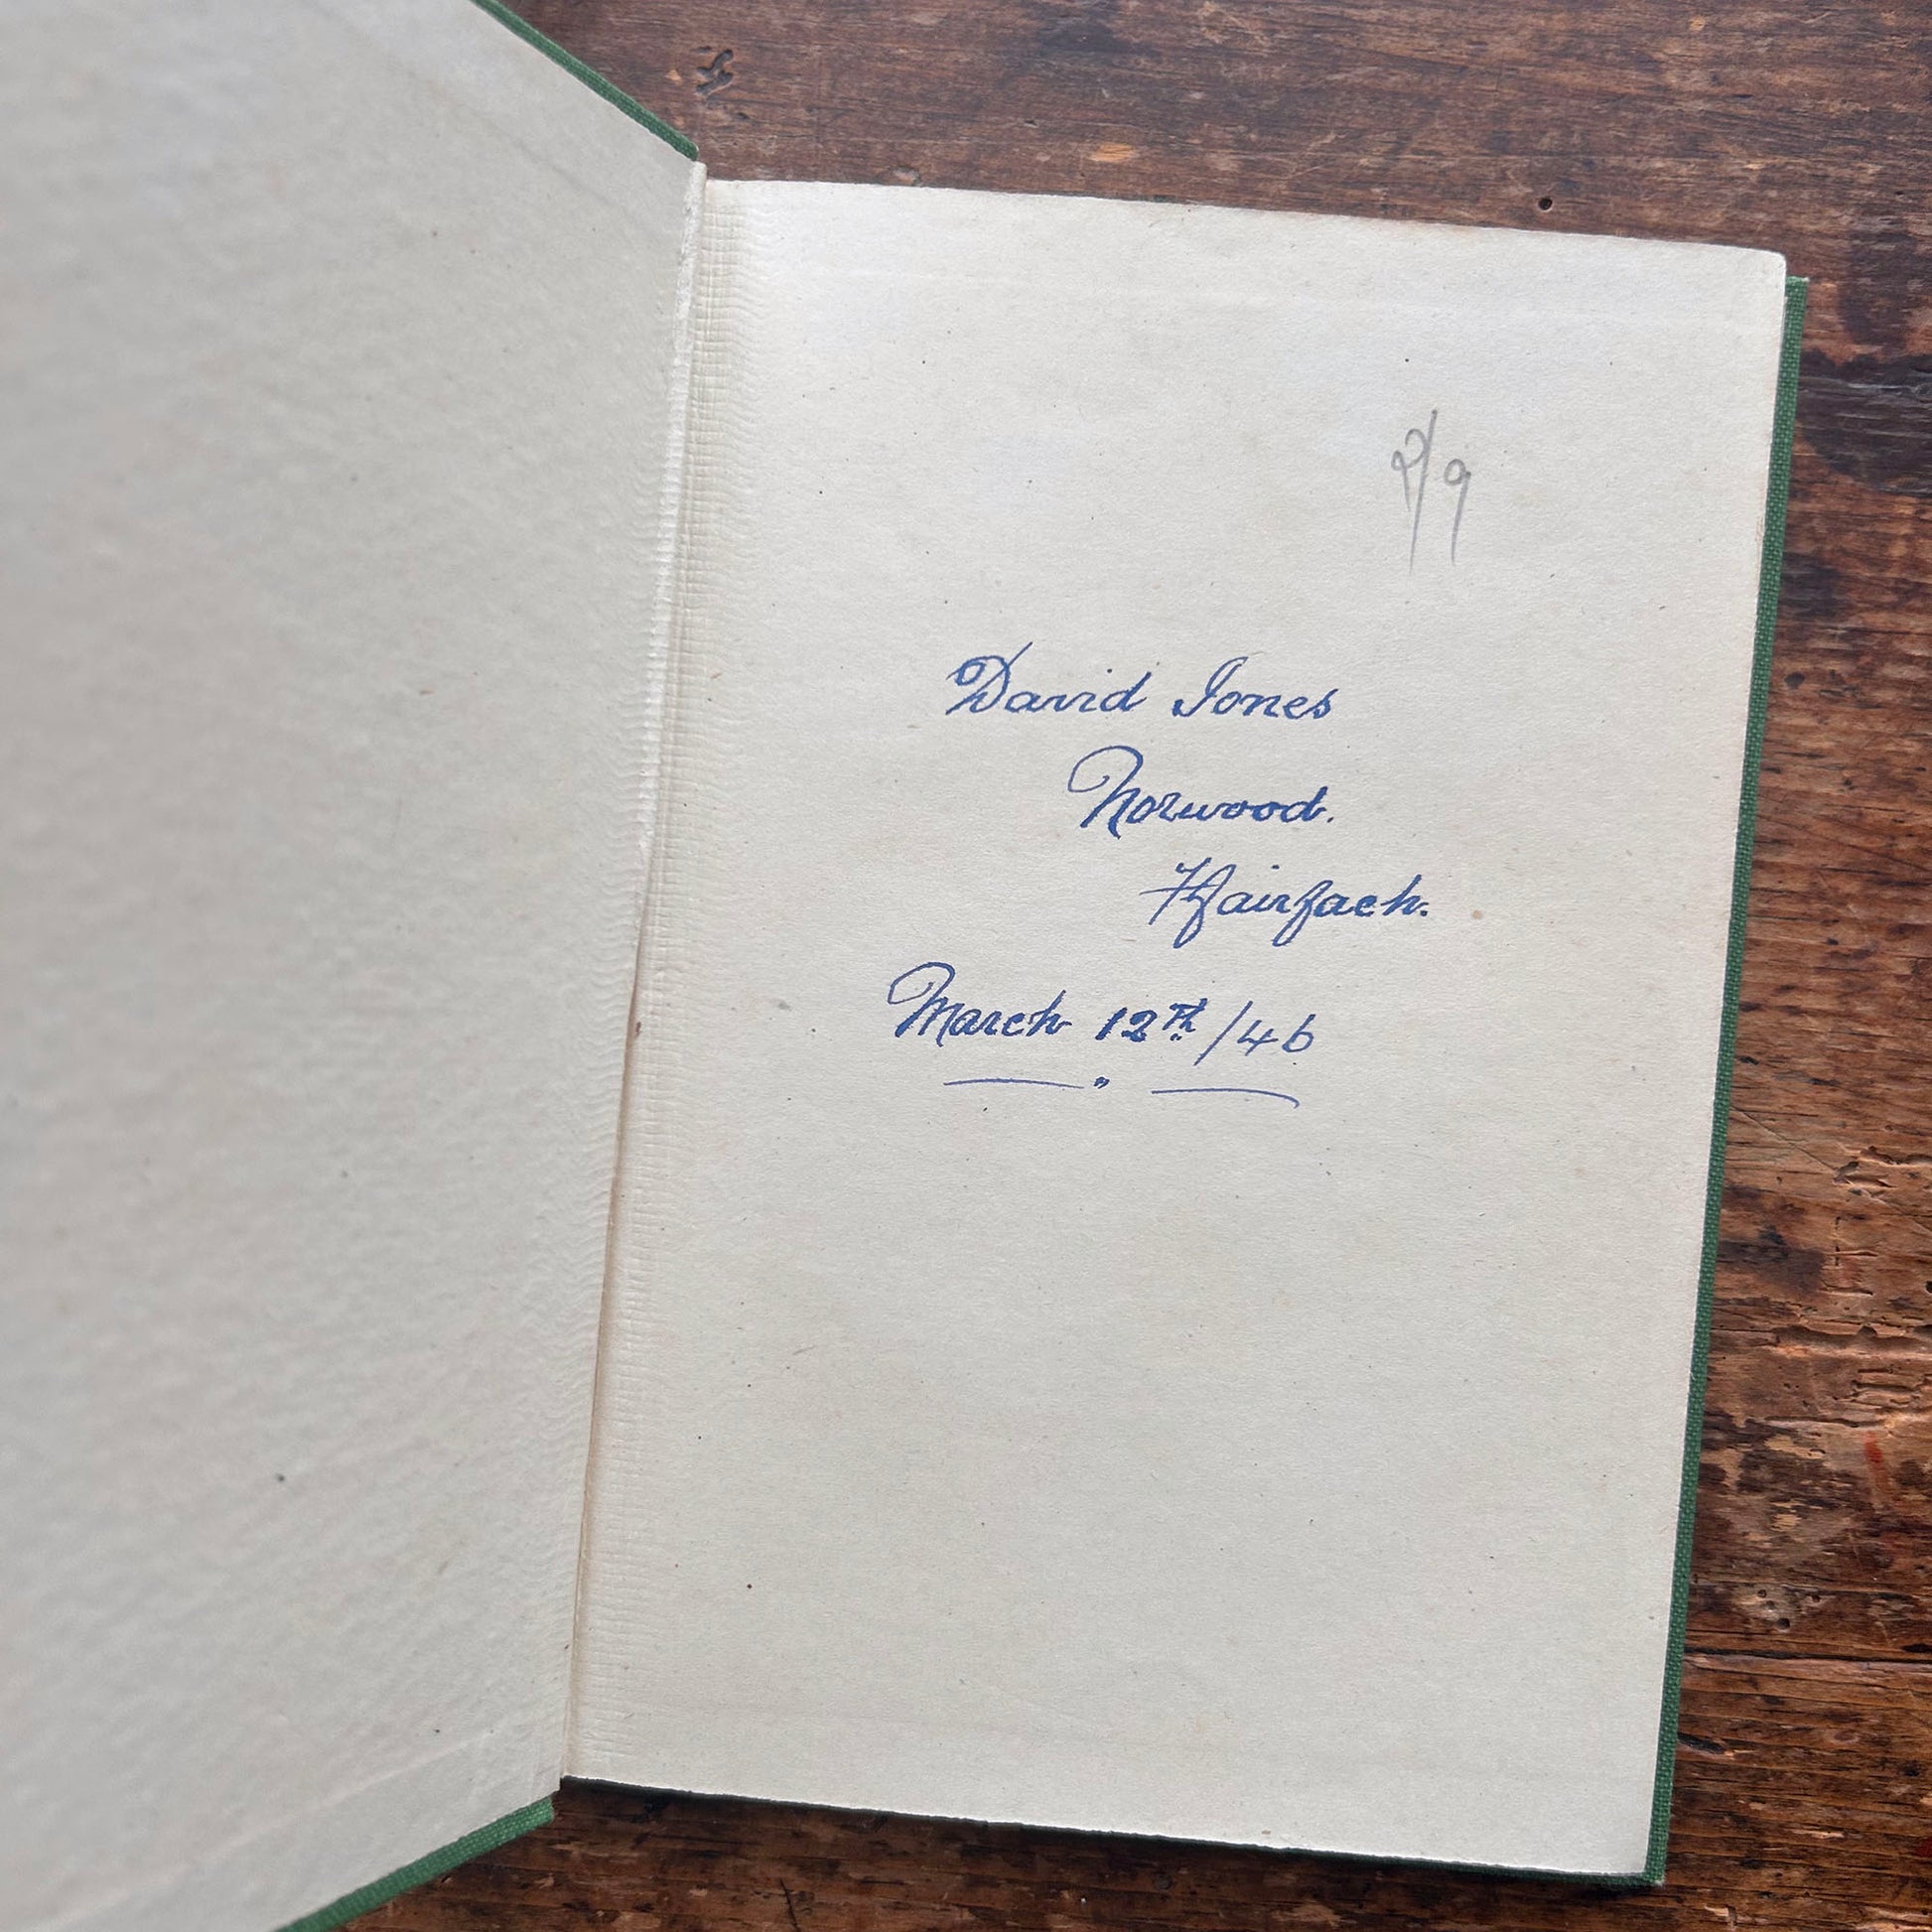 2/9
David Jones
Norwood.
Ffairfach.
March 12th /46